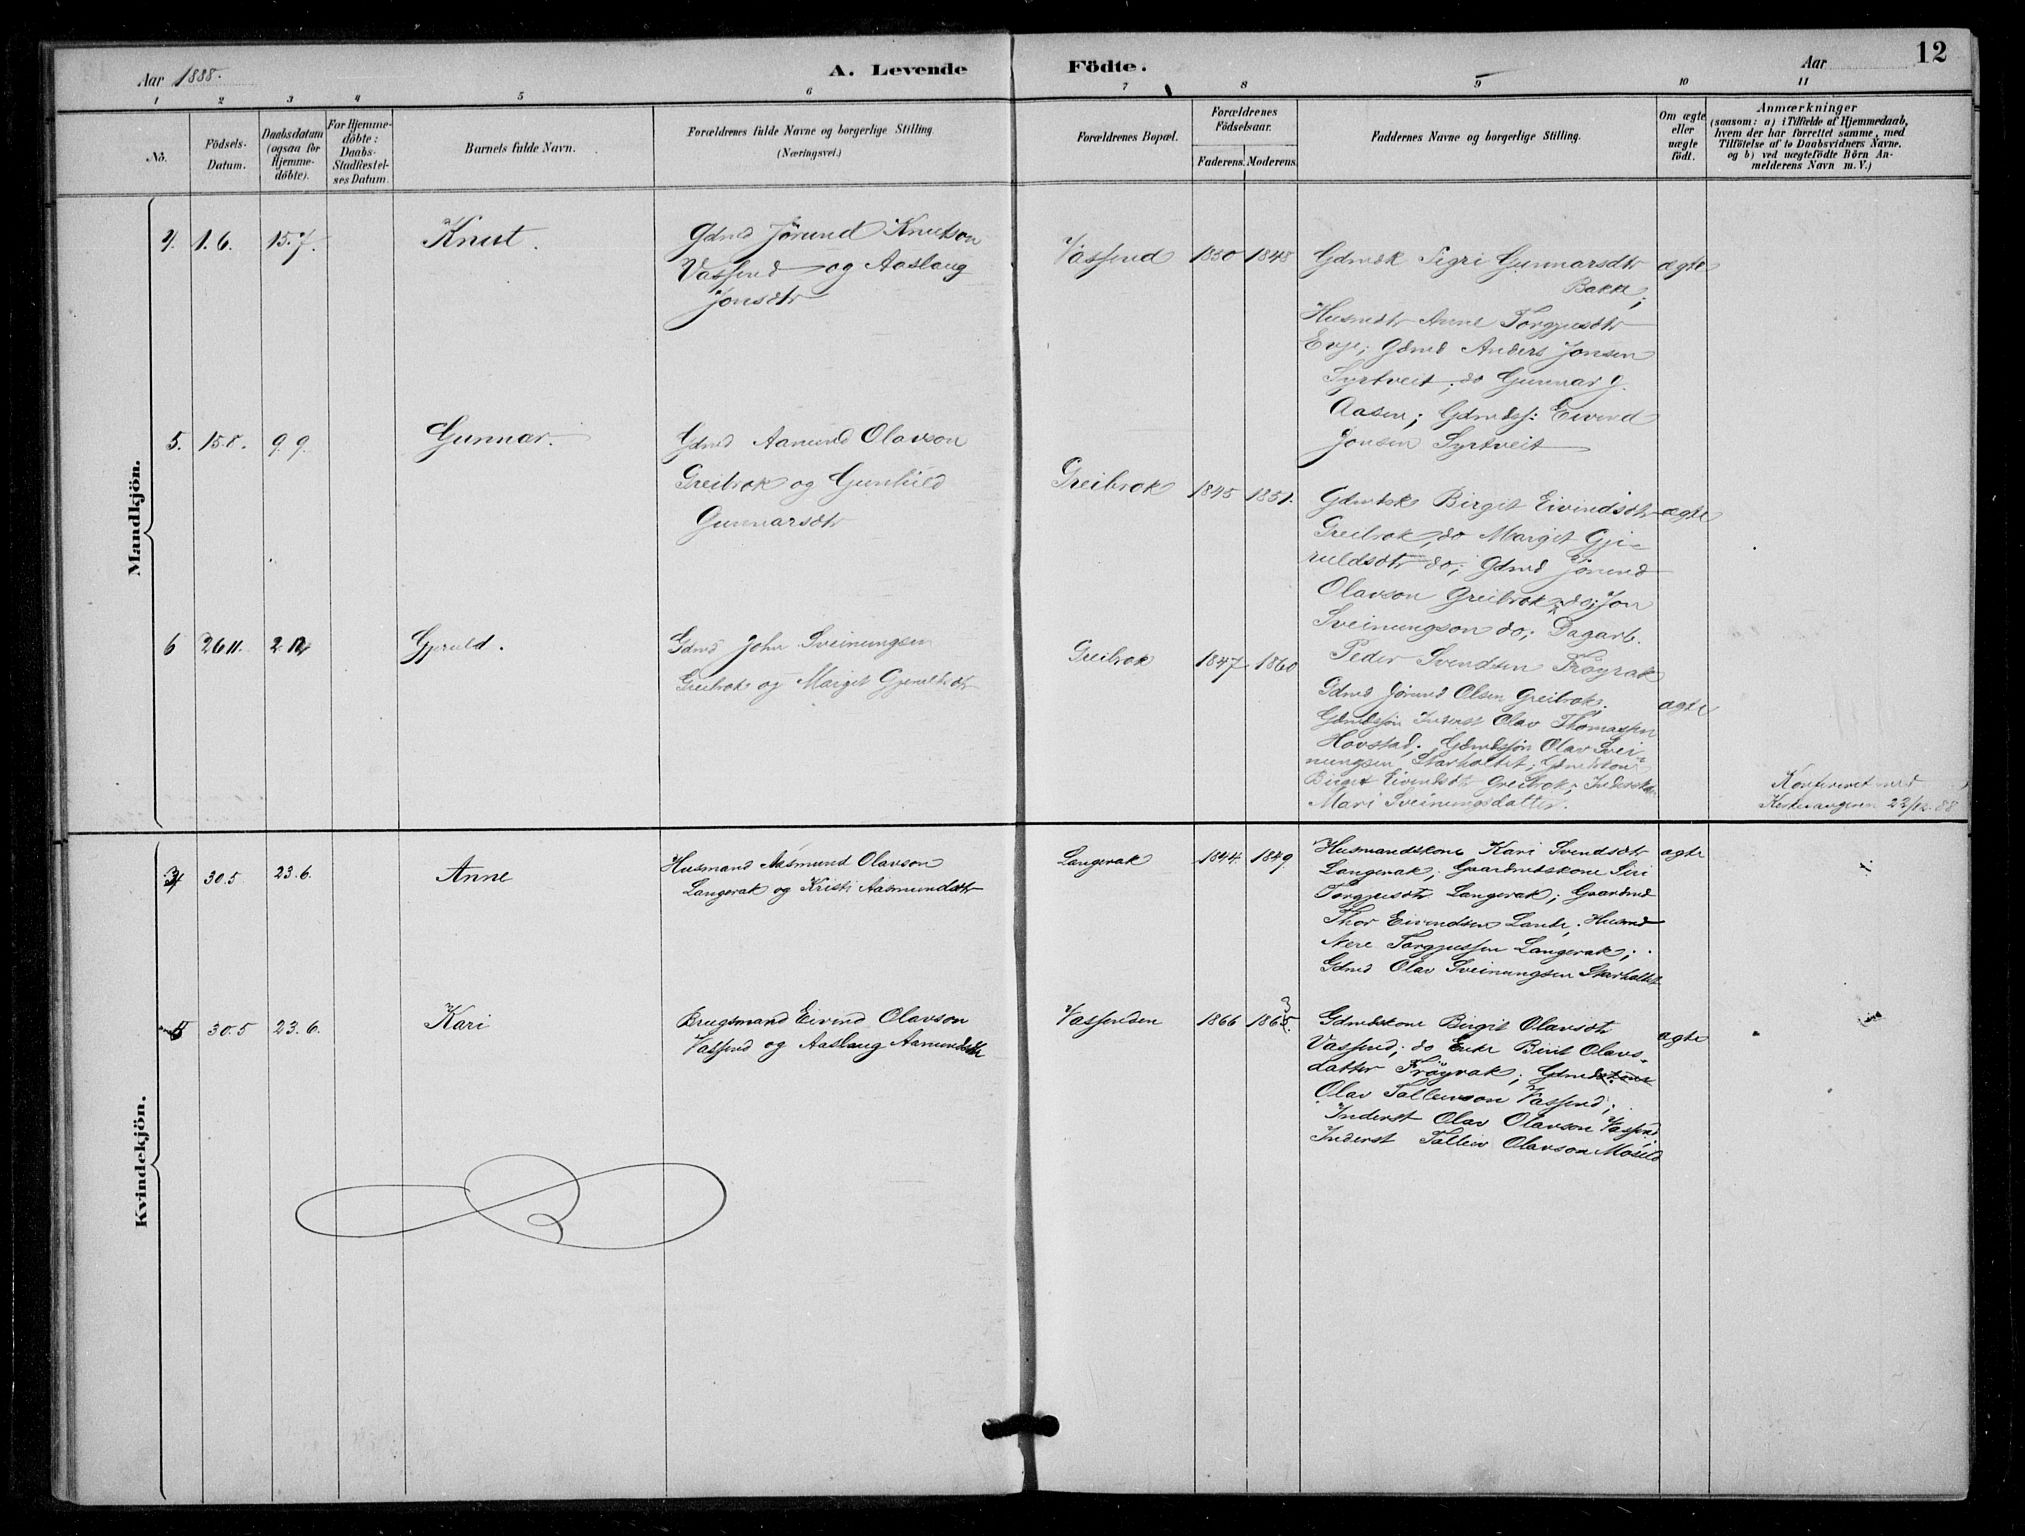 Aar 1888.
A. Levende Födte.
Aar
12
1 2 3 4 5 6 7 8 9 10 11
No.
Födsels-Datum.
Daabsdatum (ogsaa for Hjemmedöbte).
For Hjemmedöbte: Daabs-Stadfæstelses Datum.
Barnets fulde Navn.
Forældrenes fulde Navne og borgerlige Stilling.
(Næringsvei.)
Forældrenes Bopæl.
Forældrenes Födselsaar.
Faderens. Moderens.
Faddernes Navne og borgerlige Stilling.
Om ægte eller uægte födt.
Anmærkninger
(saasom: a) i Tilfælde af Hjemmedaab,
hvem der har forrettet samme, med
Tilföielse af to Daabsvidners Navne.
og b) ved uægtefödte Börn An-
melderens Navn m. V.)
Mandkjön.
4. 1.6. 15.7. Knut.
Gdmd Jørund Knutson
Vassend og Aaslaug
Jonsdtr
Vassend 1850 1848
Gdmdk Sigri Gunnarsdtr
Bakke;
Husmdtr Anne Torgjusdtr
Evje; Gdmd Anders Jonsen
Syrtveit; do Gunnar G.
Aasen; Gdmdss: Eivind
Jonsen Syrtveit
ægte
5. 15.8. 9.9. Gunnar.
Gdmd Aamund Olavson
Greibrok og Gunhild
Gunnarsdtr
Greibrok 1845 1851.
Gdmdsk Birgit Eivindsdtr
Greibrok, do Margit Gje-
ruldsdtr do; Gdmd Jørund
Olavson Greibrok; do; Jon
Sveinungson do; Dagarb.
Peder Svendsen Frøyrak
ægte
6 26.11. 2.12 Gjeruld.
Gdmd John Sveinungsen
Greibrok og Margit Gjeruldsdtr
Greibrok 1847 1860
Gdmd Jørund Olsen Greibrok;
Gdmdssøn Inderst Olav Thomassen
Hovstad; Gdmdssøn Olav Svei-
nungsen Starholtet; Gdmdskone
Birgit Eivindsdtr Greibrok; Indersk
Mari Sveinungsdatter.
ægte
Konfereret med
Kirkesangeren 23/12. 88
Kvindekjön.
30.5. 23.6. Anne
Husmand Aasmund Olavson
Langerak og Kristi Aasmundsdtr
Langerak 1844. 1849.
Husmandskone Kari Svendsdtr
Langerak; Gaardmdskone Siri
Torgjusdtr Langerak; Gaardmd
Thor Eivindsen Lande; Husmd
Nere Torgjussen Langerak;
Gdmd Olav Sveinungsen Starholtet
ægte
5 30.5 23.6. Kari
Brugsmand Eivind Olavson
Vassend og Aaslaug Aamundsdtr
Vassenden 1866 1863.
Gdmdskone Birgit Olavsdtr
Vassend; do Enke Birit Olavs-
datter Frøyrak; Gdmdskone
Olav Tallevson Vassend;
Inderst Olav Olavson Vassend
Inderst Tallev Olavson Moseid
ægte